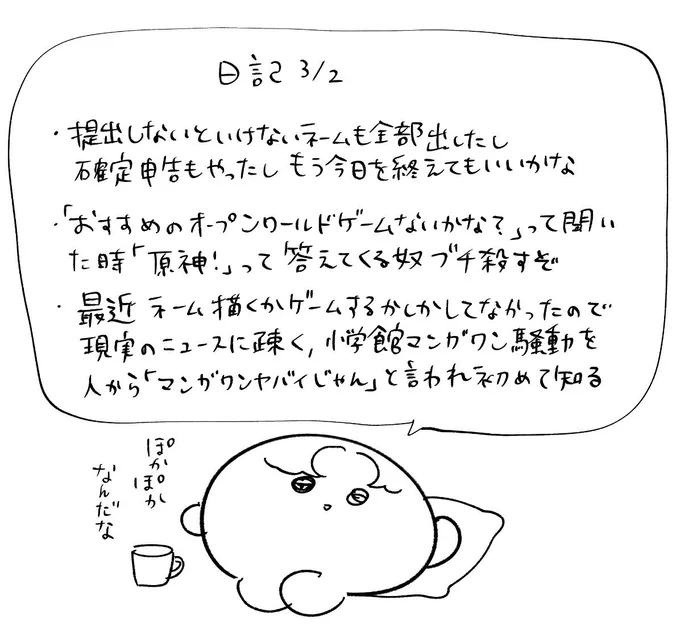 日記 3/2
・提出しないといけないネームも全部出したし
確定申告もやったし もう今日を終えてもいいかな
・「おすすめのオープンワールドゲームないかな？」って聞い
た時「原神！」って答えてくる奴ブチ殺すぞ
・最近 ネーム描くかゲームするかしかしてなかったので
現実のニュースに疎く, 小学館マンガワン騒動を
人から「マンガワンヤバイじゃん」と言われ初めて知る
ぽかぽか
なんだな